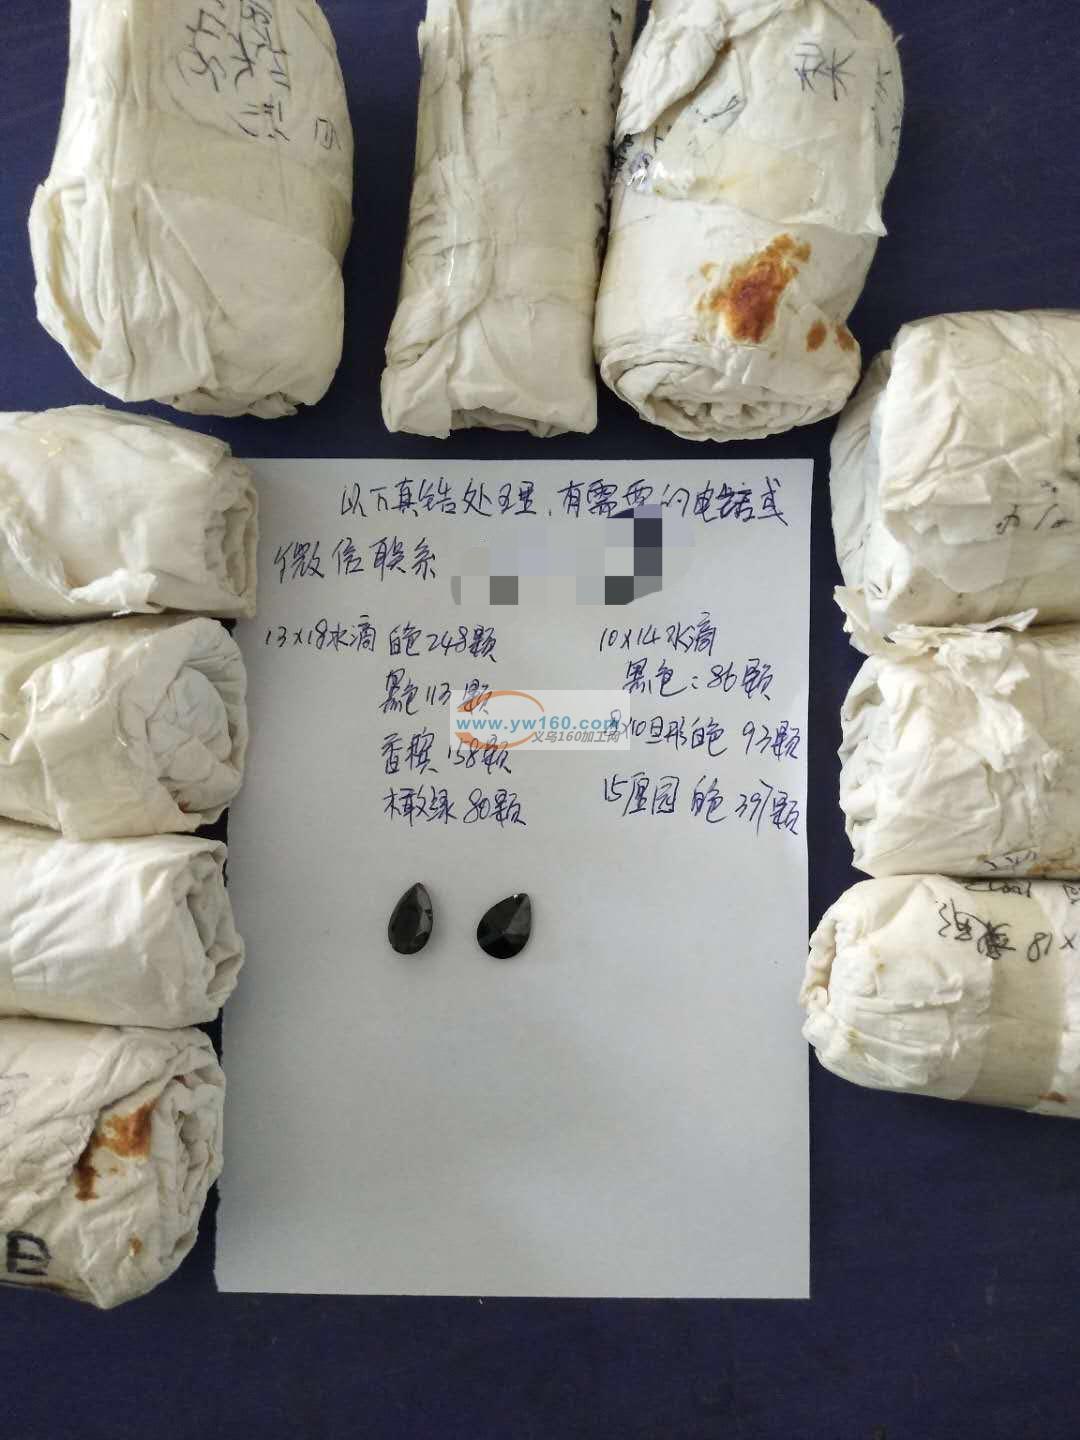 以下真锆处理,有需要的电话或
微信联系
13×18水滴 白色248颗
黑色113颗
香槟158颗
橄绿80颗
10×14水滴
黑色:86颗
8×10旦形白色 93颗
15厘园 白色 397颗
www.yw160.com
义乌160加工网
白
梨木
×18